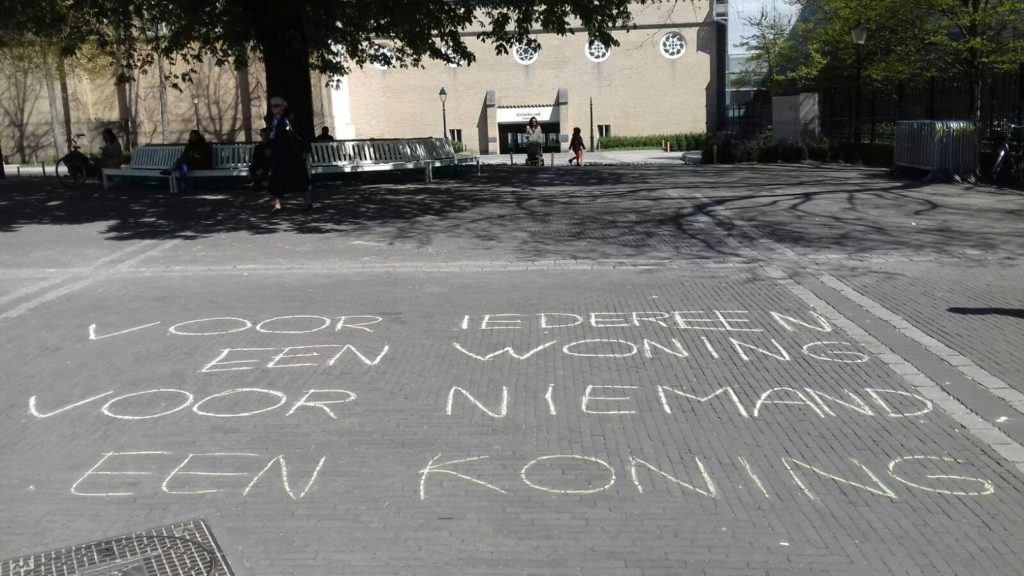 VOOR IEDEREEN
EEN WONING
VOOR NIEMAND
EEN KONING